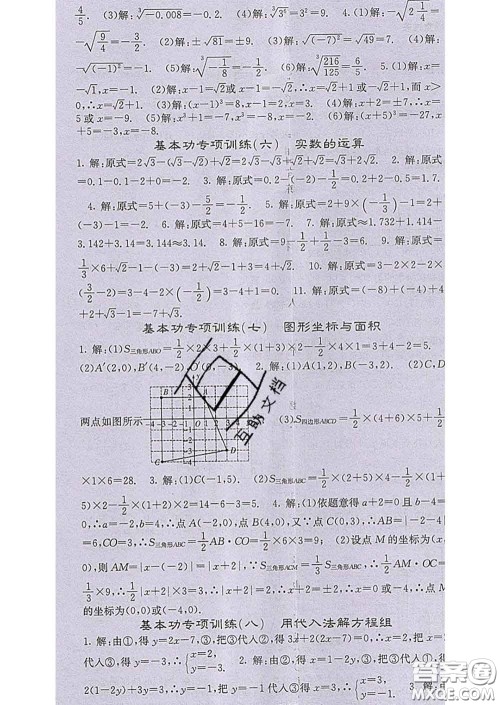 4/5. (3)解:∛-0.008=-0.2. (4)解:∛3⁶=3²=9. 4.(1)解:-√2 1/4=
-√9/4=-3/2. (2)解:±√81=±9. (3)解:√(-7)²=√49=7. (4)解:
-√(-1)²=-1. (5)解:∛-1/8=-1/2. (6)解:∛216/125=6/5. 5.(1)解:x=
-√1,x=-1. (2)解:(x-1)²=2,x-1=±√2,∴x=√2+1或-√2+1,而x>
0,∴x=√2+1. (3)解:(x-1)³=8,x-1=2,x=3. (4)解:x+2=±7,∴x=
5或x=-9. (5)解:x³+1=-7,x³=-8,x=-2. (6)解:(x+5)³=-27,x
+5=-3,x=-8.
基本功专项训练(六) 实数的运算
1.解:原式=2√3-(√3-√2)+√2=2√3-√3+√2+√2=√3+2√2. 2.解:原式
=0.1-0.1-2+0=-2. 3.解:原式=0.2-(-2)-1/2=0.2+2-0.5=1.7.
4.解:原式=5+(-3)-5/2=-1/2. 5.解:原式=2+9×(-1/3)-1=2+
(-3)-1=-2. 6.解:原式=4+5-16=-7. 7.解:原式≈1.732+1.414-
3.142+3.14=3.144≈3.14. 8.解:原式=-9+1/2+2-1/2+1/2-3=6. 9.解:原式=
1/3×6+√2-1-(-3)=2+√2-1+3=√2+4. 10.解:原式=-3-4×
(3/2-2)=3-4-2×(-1/2)=3-4+1=0. 11.解:原式=-2-√2-(-4)
+2=-2-√2+4+2√3=√2+4.
基本功专项训练(七) 图形坐标与面积
1.解:(1)S三角形ABO=1/2×2×3+1/2×(1+3)×2-1/2×1×4=3+4-2=5.
(2)A′(2,0),B′(4,-2),O′(0,-3). 2.解:(1)A(-2,1),B(-3,-2). (2)C,D
两点如图所示 (3)S四边形ABCD=1/2×(4+6)×5+1/2
×1×6=28. 3.解:(1)C(-1,5). (2)S三角形ABC=1/2×(2+5)×(2+
5)×2-1/2×(1+2)×2=14-6-3=5. 4.解:(1)依题意得a+2=0且b-4=
0,∴a=-2,b=4,∴点A(-2,0),点B(4,0),又∵C(0,3),∴AB=|-2-4|
=6,CO=3,∴S三角形ABC=1/2AB·CO=1/2×6×3=9. (2)设点M的坐标为(x,
0),则AM=|x-(-2)|=|x+2|,又∵S三角形ACM=1/3S三角形ABC,∴1/2AM·OC=
1/3×9,∴1/2|x+2|×3=3,∴|x+2|=2,即x+2=±2,解得x=0或-4,故点M
的坐标为(0,0)或(-4,0).
基本功专项训练(八) 用代入法解方程组
1.解:由①,得y=2x-7.③,把③代入②得3x+2(2x-7)=0,∴x=2,把x=2
代入③,得y=-3,∴{x=2, y=-3. 2.解:由②,得x=1-2y.③,把③代入①得
2(1-2y)+3y=3,∴y=-1,把y=-1代入③得x=3,∴{x=3, y=-1. 3.解:由
互助文档
答案圈
MXQE.COM